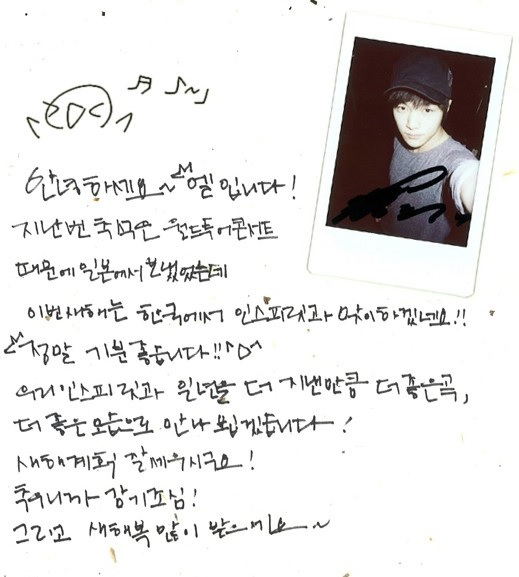 안녕하세요~ 엘입니다!
지난번 추석은 월드투어콘서트
때문에 일본에서 보냈었는데
이번새해는 한국에서 인스피릿과 맞이하겠네요!!
정말 기분 좋습니다!! ^D^
우리인스피릿과 일년을 더 지낸만큼 더좋은곡,
더 좋은모습으로 만나 뵙겠습니다!
새해계획 잘세우시구요!
추우니까 감기조심!
그리고 새해복 많이 받으세요~